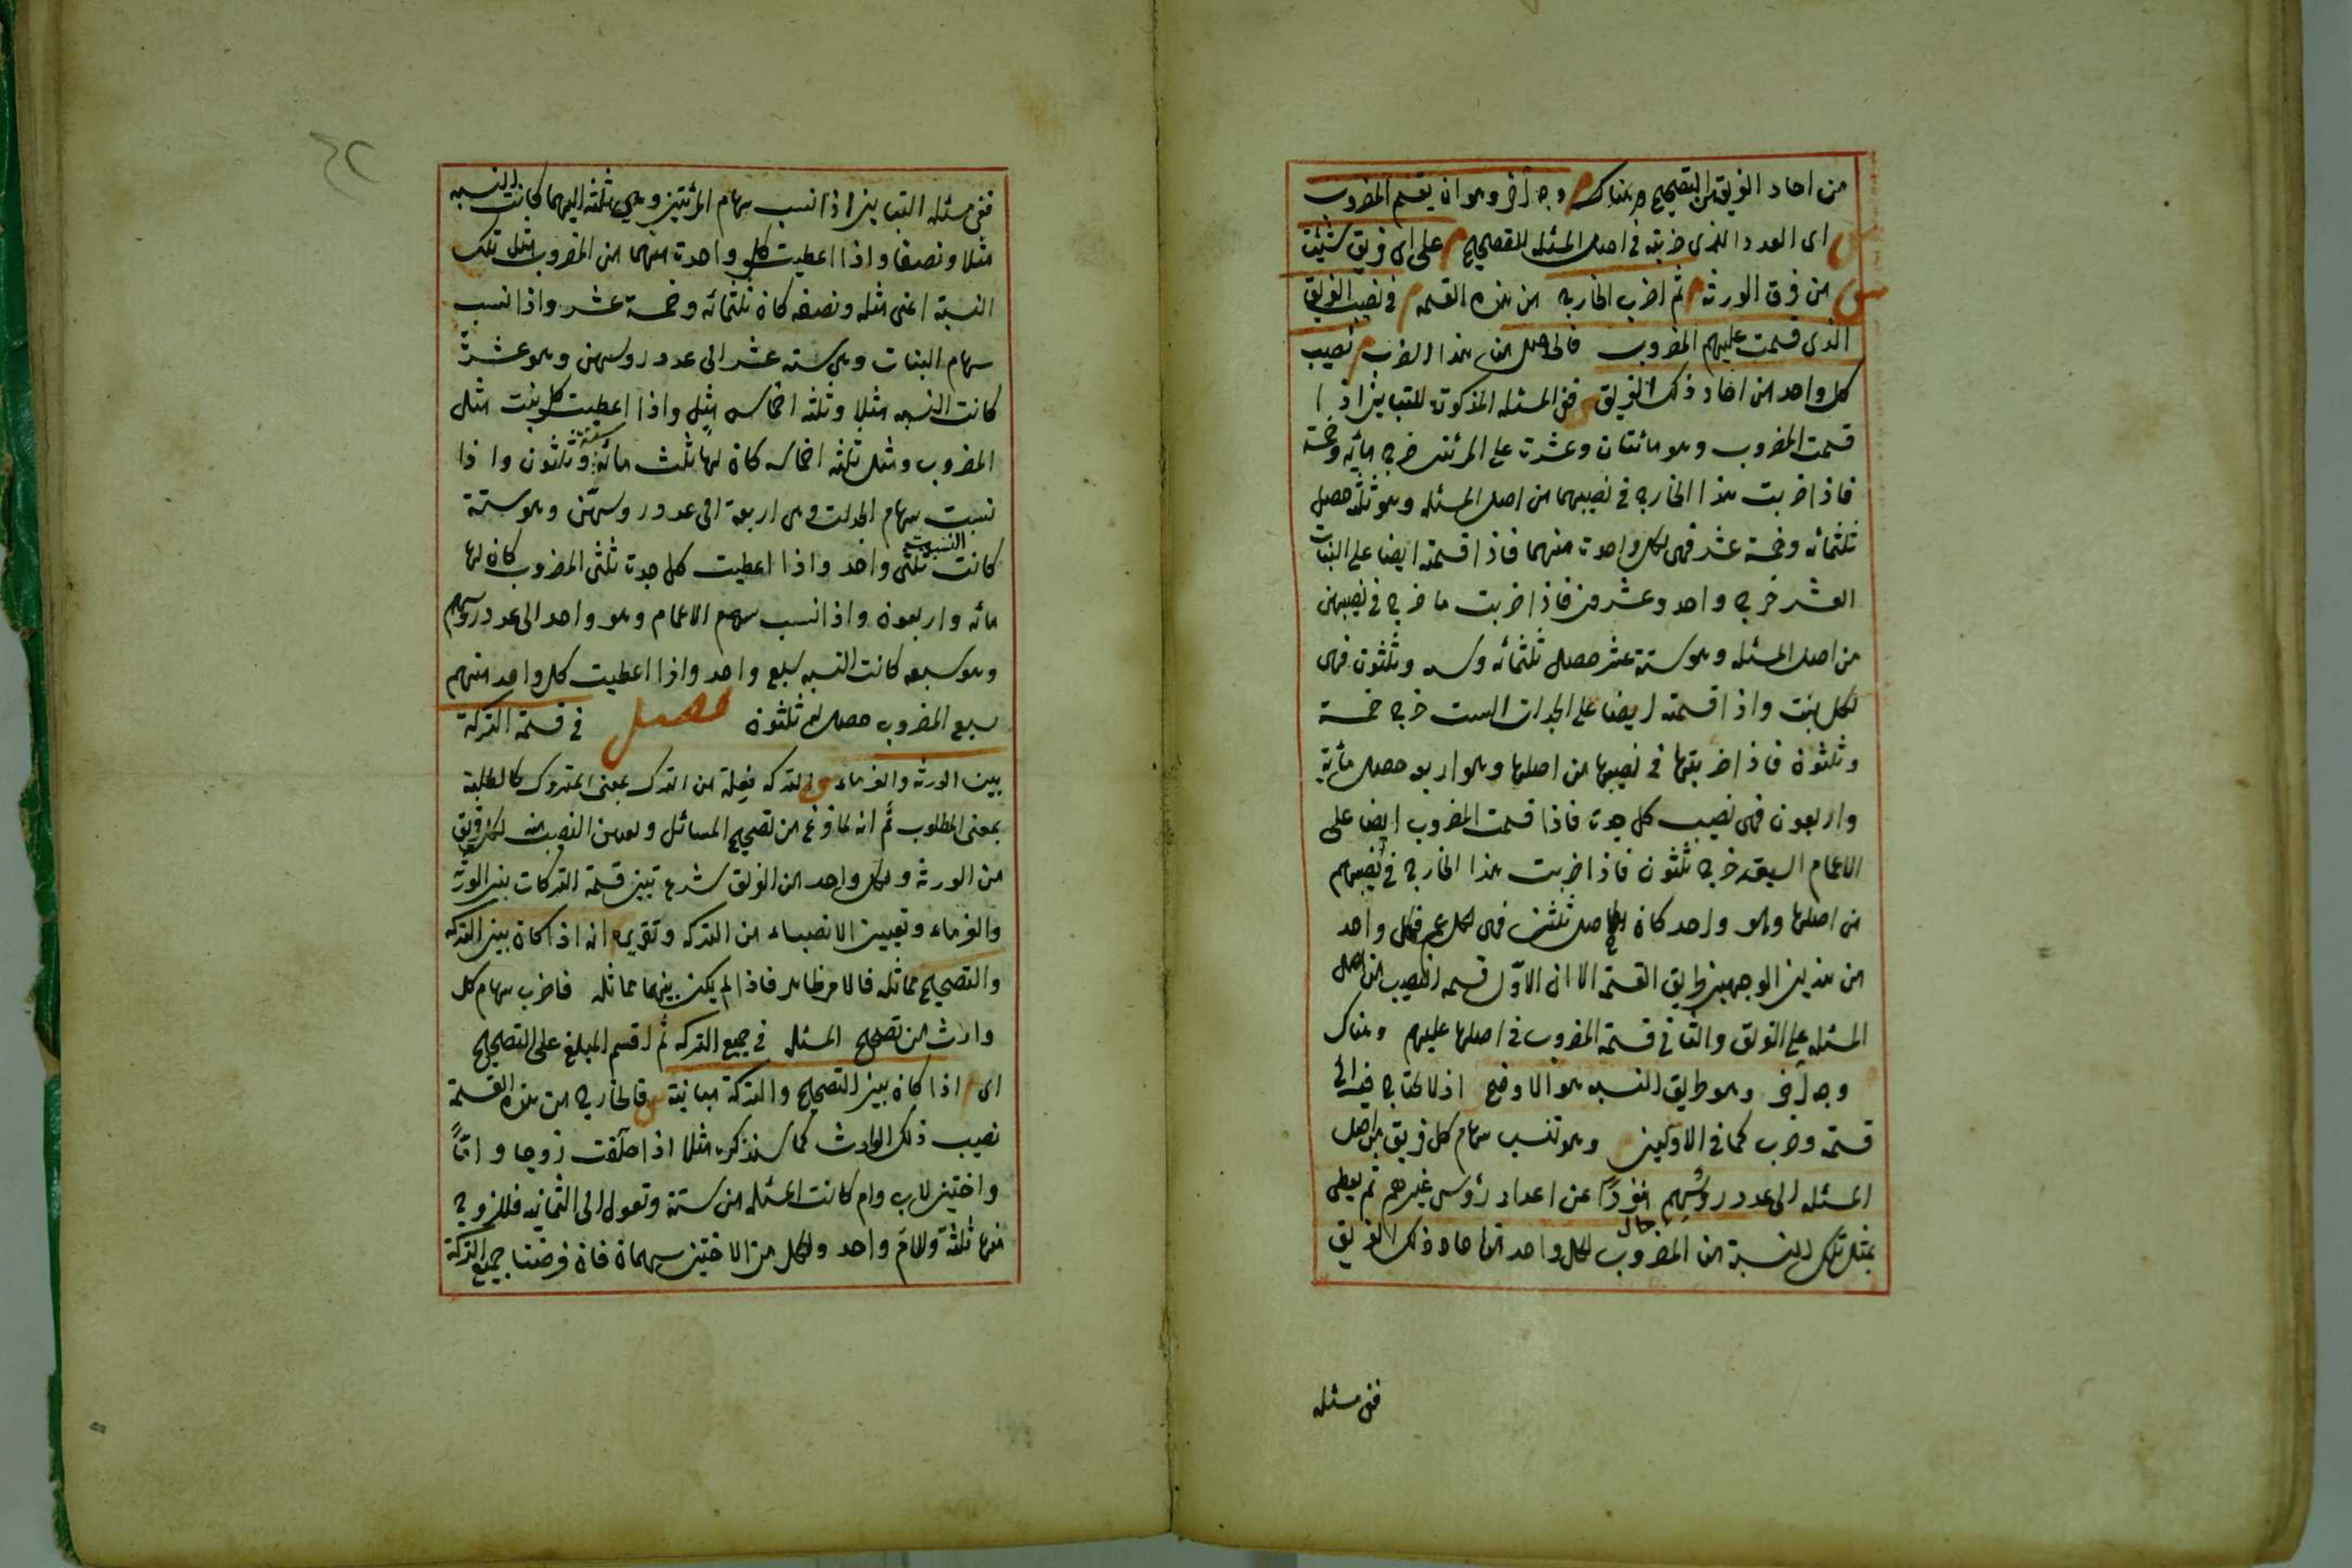 من احاد الفريق من التصحيح وهناك م وجه آخر وهو ان يقسم المضروب
ش اى العدد الذى ضربته فى اصل المسئلة للتصحيح م على اى فريق شئت
ش من فرق الورثة م ثم اضرب الخارج من هذه القسمة م فى نصيب الفريق
الذى قسمت عليهم المضروب فالحاصل من هذا الضرب م نصيب
كل واحد من احاد ذلك الفريق ش ففى المسئلة المذكورة للتباين اذا
قسمت المضروب وهو مائتان وعشرة على المرئتين خرج مائة وخمسة
فاذا ضربت هذا الخارج فى نصيبهما من اصل المسئلة وهو ثلثة حصل
ثلثمائة وخمسة عشر فهى لكل واحدة منهما فاذا قسمته ايضا على البنات
العشر خرج واحد وعشرون فاذا ضربت ما خرج فى نصيبهن
من اصل المسئلة وهو ستة عشر حصل ثلثمائة وستة وثلثون فهى
لكل بنت واذا قسمته ايضا على الجدات الست خرج خمسة
وثلثون فاذا ضربتها فى نصيبها من اصلها وهو اربعة حصل مائة
واربعون فهى نصيب كل جدة فاذا قسمت المضروب ايضا على
الاعمام السبعة خرج ثلثون فاذا ضربت هذا الخارج فى نصيبهم
من اصلها وهو واحد كان الحاصل ثلثين فهى لكل عم فكل واحد
من هذين الوجهين طريق القسمة الا ان الاوّل قسمة النصيب من اصل
المسئلة على الفريق والثانى قسمة المضروب فى اصلها عليهم وهناك
وجه آخر وهو طريق النسبة هو الاوضح اذ لا يحتاج فيه الى
قسمة وضرب كما فى الاولين وهو تنسب سهام كل فريق من اصل
المسئلة الى عدد رؤسهم مفردًا عن اعداد رؤس غيرهم ثم يعطى
بمثل تلك النسبة من المضروب لكل واحد من احاد ذلك الفريق
ففى مسئلة
ففى مسئلة التباين اذا نسبت سهام المرئتين وهى ثلثة اليهما كانت النسبة
مثلا ونصفا واذا اعطيت كل واحدة منهما من المضروب مثل تلك
النسبة اعنى مثله ونصفه كان ثلثمائة وخمسة عشر واذا نسبت
سهام البنات وهى ستة عشر الى عدد رؤسهن وهو عشرة
كانت النسبة مثلا وثلثة اخماس مثل واذا اعطيت كل بنت مثل
المضروب ومثل ثلثة اخماسه كان لها ثلث مائة وستة وثلثون واذا
نسبت سهام الجدات وهى اربعة الى عدد رؤسهن وهو ستة
كانت النسبة ثلثى واحد واذا اعطيت كل جدة ثلثى المضروب كان لها
مائة واربعون واذا نسبت سهم الاعمام وهو واحد الى عدد رؤسهم
وهو سبعة كانت النسبة سبع واحد واذا اعطيت كل واحد منهم
سبع المضروب حصل لهم ثلثون فصل فى قسمة التركة
بين الورثة والغرماء ش التركة فعلة من الترك بمعنى المتروك كالطلبة
بمعنى المطلوب ثم انه لما فرغ من تصحيح المسائل وتعيين النصيب منه لكل فريق
من الورثة ولكل واحد من الفريق شرع تبين قسمة التركات بين الورثة
والغرماء وتعيين الانصباء من التركة وتقريره انه اذا كان بين التركة
والتصحيح مماثلة فالامر ظاهر فاذا لم يكن بينهما مماثلة فاضرب سهام كل
وارث من تصحيح المسئلة فى جميع التركة ثم اقسم المبلغ على التصحيح
اى اذا كان بين التصحيح والتركة مباينة ش فالخارج من هذه القسمة
نصيب ذلك الوارث كما سنذكره مثلا اذا خلفت زوجا وامّا
واختين لاب وام كانت المسئلة من ستة وتعول الى الثمانية فللزوج
منها ثلثة وللام واحد ولكل من الاختين سهمان فان فرضنا جميع التركة